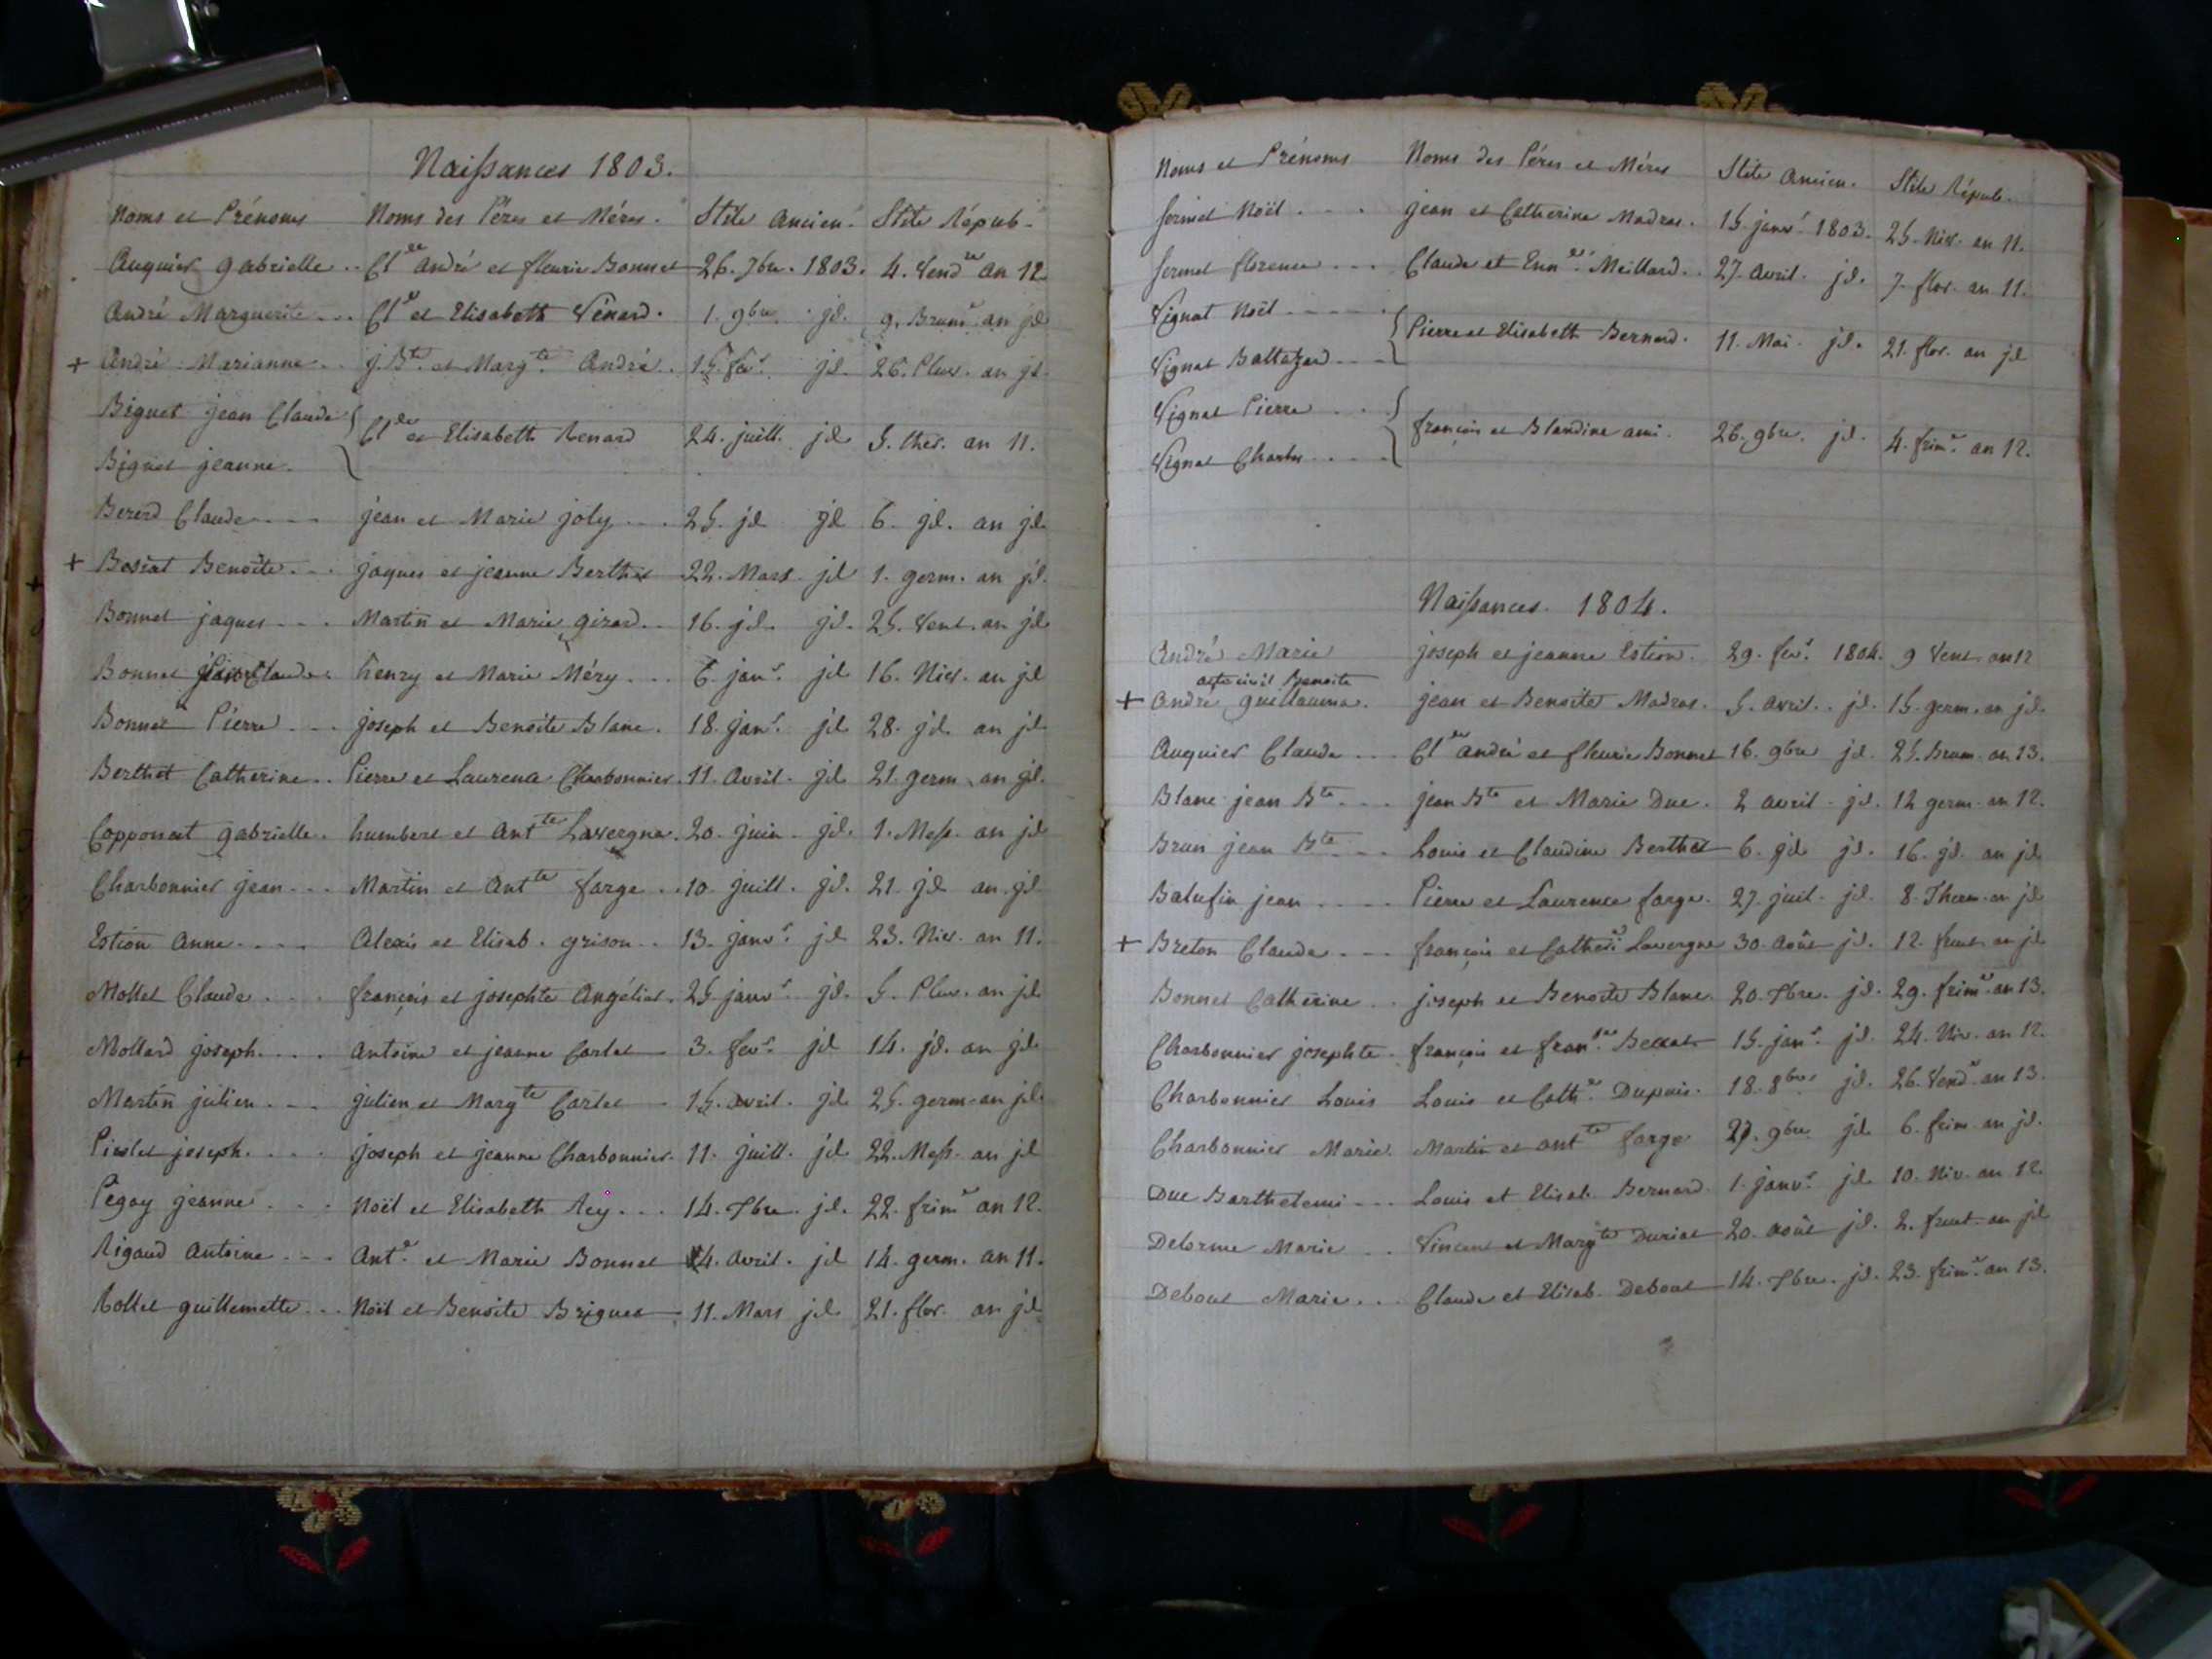 Naissances 1803.
Noms et Prénoms Noms des Péres et Méres. Stile ancien. Stile Répub.
Auquier gabrielle .. Cl.de andré et fleurie Bonnet 26. 7bre. 1803. 4. Vend.re an 12
André Marguerite ... Cl.de et Elisabeth Vénard. 1. 9bre. jd. 9. Brum.e an jd
+ André Marianne .. j. B.te et Marg.te André. 15. fév.r jd. 26. Pluv. an jd.
Biguet jean Claude
Cl.de et Elisabeth Renard 24. juill. jd 5. ther. an 11.
Biguet jeanne.
Bererd Claude ... jean et Marie joly ... 25. jd jd 6. jd. an jd
+ Bosiat Benoite ... jaques et jeanne Berthet 22. Mars jd 1. germ. an jd.
Bonnet jaques ... Martin et Marie girard .. 16. jd. jd. 25. Vent. an jd
Bonnet Claude. henry et Marie Méry ... 6. janv.r jd 16. Niv. an jd
Bonnet Pierre ... joseph et Benoite Blanc. 18. janv.r jd 28. jd. an jd
Berthet Catherine .. Pierre et Laurence Charbonnier. 11. avril. jd 21. germ. an jd.
Copponat gabrielle. humbert et Ant.te Lavergne. 20. juin. jd. 1. Mess. an jd
Charbonnier jean ... Martin et Ant.te farge .. 10. juill. jd. 21. jd an jd
Estion Anne .... Alexis et Elisab. grison .. 13. janv.r jd 23. Niv. an 11.
Mollet Claude .... françois et josephte Angéliot. 25. janv.r jd. 5. Pluv. an jd
Mollard joseph .... antoine et jeanne Carlet 3. fev.r jd 14. jd. an jd.
Martin julien ... julien et Marg.te Carlet 15. avril. jd 25. germ. an jd.
joseph .... joseph et jeanne Charbonnier. 11. juill. jd 22. Mess. an jd
Pégay jeanne ... Noël et Elisabeth Rey ... 14. 7bre. jd. 22. frim.e an 12.
Rigaud Antoine ... Ant.e et Marie Bonnet 4. avril. jd 14. germ. an 11.
Rollet guillemette ... Noël et Benoite Briguet 11. Mars jd 21. flor. an jd.
Noms et Prénoms Noms des Péres et Méres Stile ancien. Stile Répub.
fermet Noël .... jean et Catherine Madras. 15. janv.r 1803. 25. Niv. an 11.
fermet florence ... Claude et Enn.de Meillard .. 27. avril. jd. 7. flor. an 11.
Vignat Noël .....
Pierre et Elisabeth Bernard. 11. Mai. jd. 21. flor. an jd
Vignat Baltazard ...
Vignat Pierre ...
françois et Blandine ami. 26. 9bre. jd. 4. frim.e an 12.
Vignat Charles ....
Naissances. 1804.
André Marie joseph et jeanne Estion. 29. fev.r 1804. 9 Vent. an 12
acte civil Benoite
+ André guillauma. jean et Benoite Madras. 5. avril .. jd. 15. germ. an jd.
Auquier Claude ... Cl.de andré et fleurie Bonnet 16. 9bre jd. 25. Brum. an 13.
Blanc jean B.te ... jean B.te et Marie Duc. 2 avril. jd. 12 germ. an 12.
Brun jean B.te ... Louis et Claudine Berthet 6. jd jd. 16. jd. an jd
Balufin jean .... Pierre et Laurence farge. 27. juil. jd. 8. Therm. an jd
+ Breton Claude ... françois et Cather.e Lavergne 30. août jd. 12. fruct. an jd
Bonnet Catherine .. joseph et Benoite Blanc. 20. 7bre. jd. 29. frim.e an 13.
Charbonnier josephte. françois et fran.se 15. janv.r jd. 24. Niv. an 12.
Charbonnier Louis Louis et Cath.e Dupuis. 18. 8bre jd. 26. Vend.e an 13.
Charbonnier Marie. Martin et ant.te farge 27. 9bre. jd. 6. frim. an jd.
Duc Barthelemi ... Louis et Elisab. Bernard. 1. janv.r jd. 10. Niv. an 12.
Delorme Marie .. Vincent et Marg.te Duriat 20. août jd. 2. fruct. an jd
Debout Marie ... Claude et Elisab. Debout 14. 7bre. jd. 23. frim.e an 13.